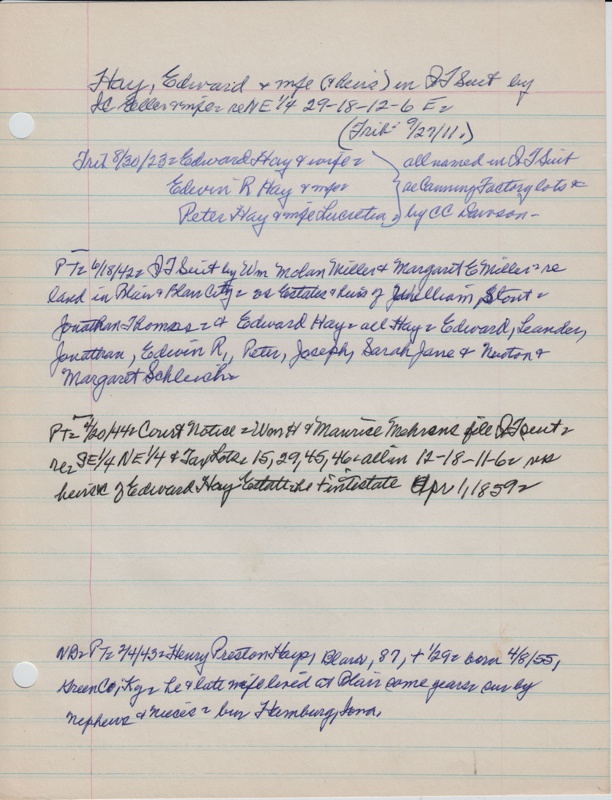 Hay, Edward & wife (& heirs) in QT Suit by
JC Eller & wife = re NE 1/4 29-18-12-6 E =
(Trib = 9/27/11.)
Trib 8/30/23 = Edward Hay & wife = all named in QT Suit
Edwin R Hay & wife re Canning Factory lots =
Peter Hay & wife Lucretia by CC Dawson -
PT = 6/18/42 = QT Suit by Wm Molan Miller & Margaret E Miller = re
land in Blair & Blair City = vs Estates & heirs of William, Stout =
Jonathan Thomas = & Edward Hay = all Hay = Edward, Leander,
Jonathan, Edwin R, Peter, Joseph, Sarah Jane & Newton &
Margaret
PT = /20/44 = Court Notice = Wm H & Maurice Mehrens file QT suit =
re = SE 1/4 NE 1/4 & Tax Lots 15, 29, 45, 46 = all in 12-18-11-6 = vs
heirs of Edward Hay Estate = he + intestate Apr 1, 1859 =
NB = PT = 2/4/43 = Henry Preston Hays, Blair, 87, + 1/29 = born 4/8/55,
Green Co, Ky = he & late wife lived at Blair some years = sur by
nephews & nieces = bur Hamburg, Iowa.